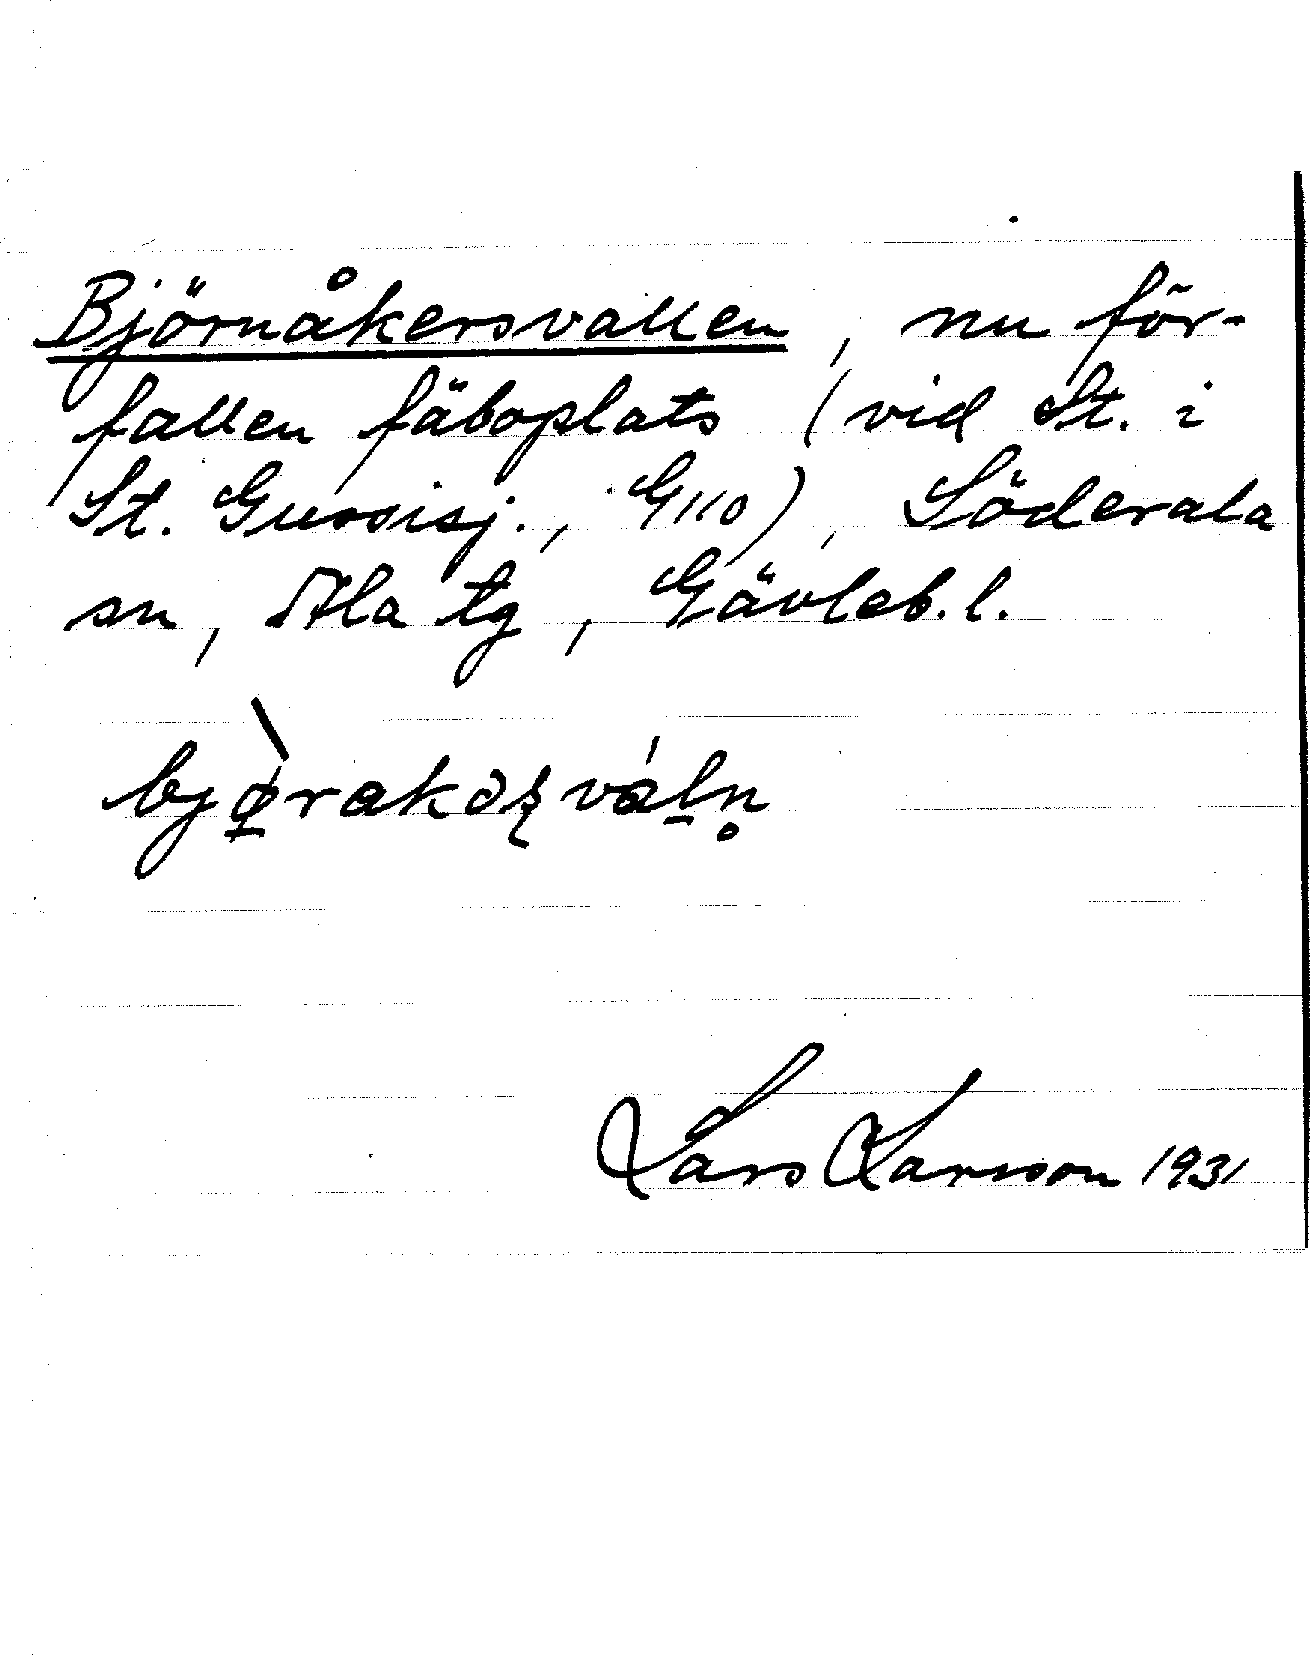 Björnåkersvallen, nu för-
fallen fäboplats (vid St. i
St. Gussisj., G110), Söderala
sn, Ala tg, Gävleb. l.
bjø̱̀rakəʂválṉ̥
Lars Larsson 1931